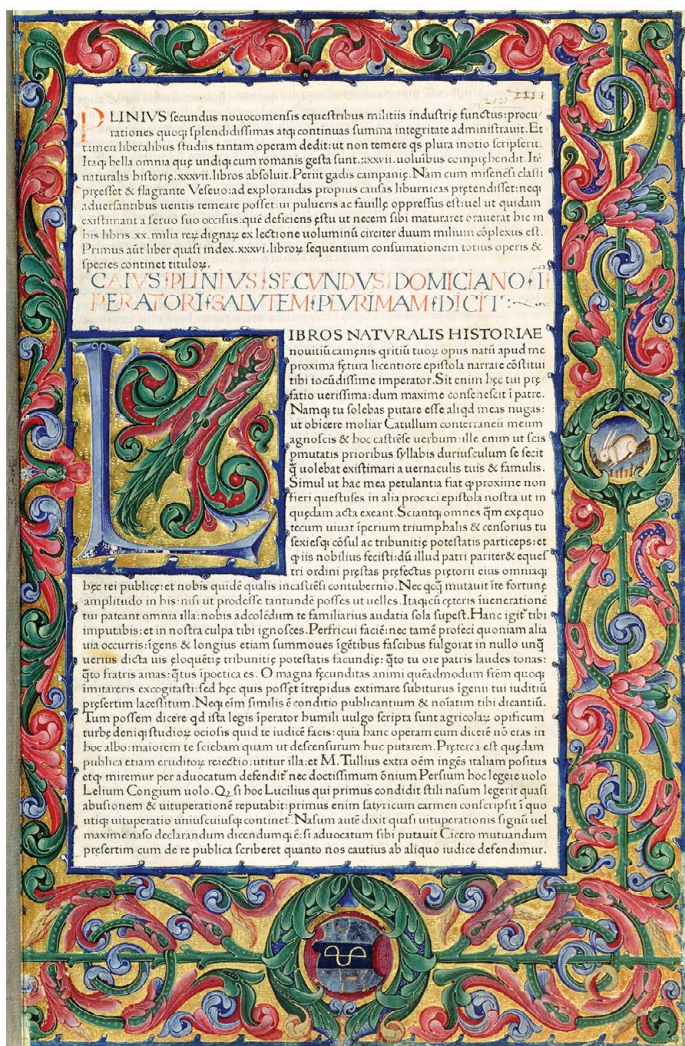 PLINIVS secundus nouocomensis equestribus militiis industrie functus: procu
rationes quoq; splendidissimas atq; continuas summa integritate administrauit. Et
tamen liberalibus studiis tantam operam dedit: ut non temere qs plura inotio scripserit.
Itaq; bella omnia que undiq; cum romanis gesta sunt. xxxvii. uoluibus comprehendit. Ite
naturalis historię. xxxvii. libros absoluit. Periit gadis campanię. Nam cum misenēsi classi
pręesset & flagrante Vesuuo: ad explorandas propius causas liburnicas prętendisset: neq;
aduersantibus uentis remeare posset: ui pulueris ac fauillę oppressus est: uel ut quidam
existimant a seruo suo occisus: quē deficiens ęstu ut necem sibi maturaret orauerat hic in
his libris .xx. milia reꝝ dignaꝝ ex lectione uoluminū circiter duum milium cōplexus est.
Primus aūt liber quasi index .xxxvi. libroꝝ sequentium consumationem totius operis &
species continet tituloꝝ.
CAIVS PLINIVS SECVNDVS DOMICIANO I
PERATORI SALVTEM PLVRIMAM DICIT
LIBROS NATVRALIS HISTORIAE
nouitiū camęnis qritiū tuoꝝ opus natū apud me
proxima fętura licentiore epistola narrare cōstitui
tibi iocūdissime imperator. Sit enim hęc tui prę
fatio uerissima: dum maxime consenescit ī patre.
Namq; tu solebas putare esse aliqd meas nugas:
ut obicere moliar Catullum conterraneū meum
agnoscis & hoc castrēse uerbum: ille enim ut scis
pmutatis prioribus syllabis duriusculum se fecit
q̄ uolebat existimari a uernaculis tuis & famulis.
Simul ut hac mea petulantia fiat qꝫ proxime non
fieri questus es in alia procaci epistola nostra ut in
quędam acta exeant. Sciantq; omnes q̄m exęquo
tecum uiuat īperium triumphalis & censorius tu
sexiesq; cōsul ac tribunitię potestatis particeps: et
qꝫ iis nobilius fecisti: dū illud patri pariter & eques
tri ordini pręstas pręfectus prętorii eius omniaq;
hęc rei publicę: et nobis quidē qualis incastrēsi contubernio. Nec qcq̄ mutauit īte fortunę
amplitudo in his: nisi ut prodesse tantundē posses ut uelles. Itaq; cū cęteris īuenerationē
tui pateant omnia illa: nobis adcolēdum te familiarius audatia sola supest. Hanc igit tibi
imputabis: et in nostra culpa tibi ignosces. Perfricui faciē: nec tamē profeci quoniam alia
uia occurris: īgens & longius etiam summoues īgētibus fascibus fulgorat in nullo unq̄
uerius dicta uis eloquētię tribunitię potestatis facundię: q̄to tu ore patris laudes tonas:
q̄to fratris amas: q̄tus īpoetica es. O magna fęcunditas animi quēadmodum fr̄em quoq;
imitareris excogitasti: sed hęc quis posset ītrepidus extimare subiturus īgenii tui iuditiū
pręsertim lacessitum. Neq; eīm similis ē conditio publicantium & noīatim tibi dicantiū.
Tum possem dicere qd ista legis īperator humili uulgo scripta sunt agricolaꝝ opificum
turbę deniq; studioꝝ ociosis quid te iudicē facis: quia hanc operam cum dicerē nō eras in
hoc albo: maiorem te sciebam quam ut descensurum huc putarem. Pręterea est quędam
publica etiam eruditoꝝ reiectio: utitur illa: et M. Tullius extra oēm ingēii italiam positus
etqꝫ miremur per aduocatum defendit nec doctissimum ōnium Persium hoc legere uolo
Lelium Congium uolo. Qꝫ si hoc Lucilius qui primus condidit stili nasum legerit quasi
abusionem & uituperationē reputabit: primus enim satyricum carmen conscripsit ī quo
utiq; uituperatio uniuscuiusq; continet. Nasum autē dixit quasi uituperationis signū uel
maxime naso declarandum dicendumq; ē: si aduocatum sibi putauit Cicero mutuandum
pręsertim cum de re publica scriberet quanto nos cautius ab aliquo iudice defendimur.